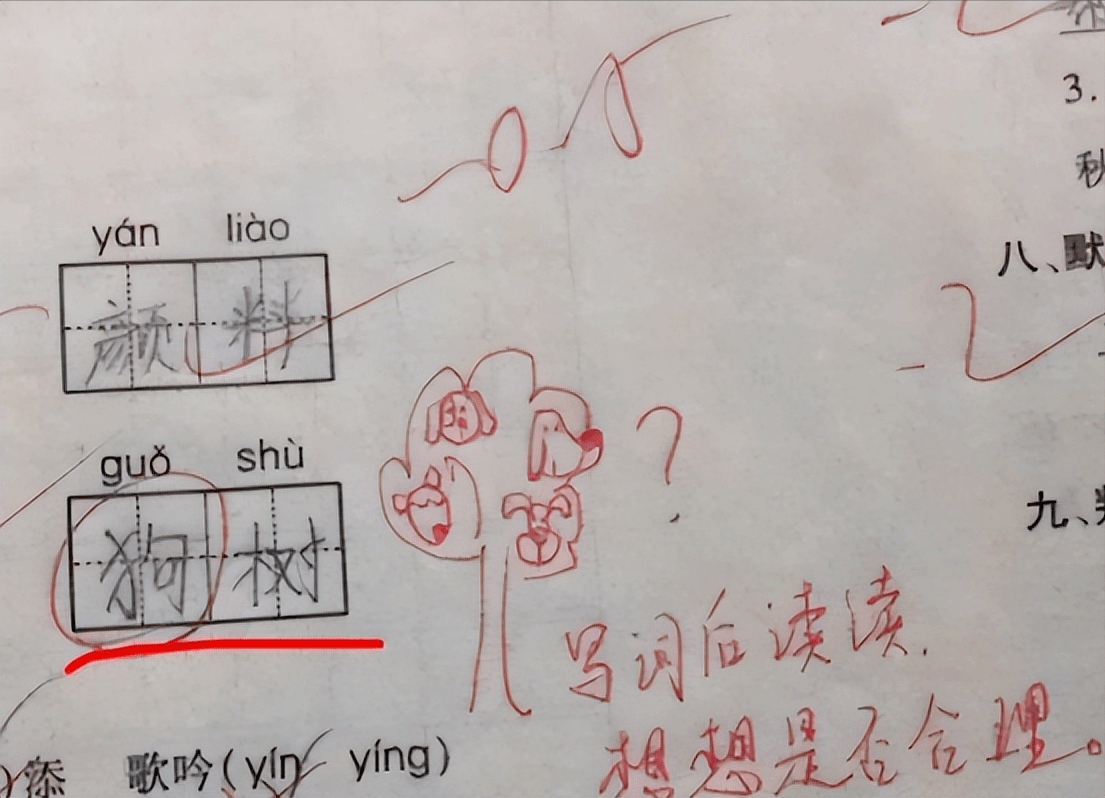 3.
秋
yán liào
颜料
八、默
guǒ shù
狗树
?
九、
写词后读读,
想想是否合理。
添 歌吟(yín yíng)